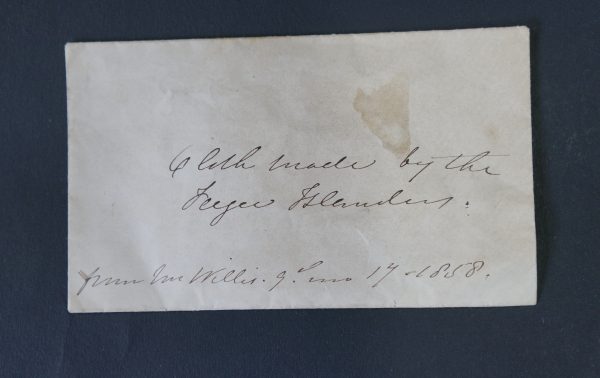 Cloth made by the
Feegee Islanders.
from Wm Willis. 9th mo 17-1858.